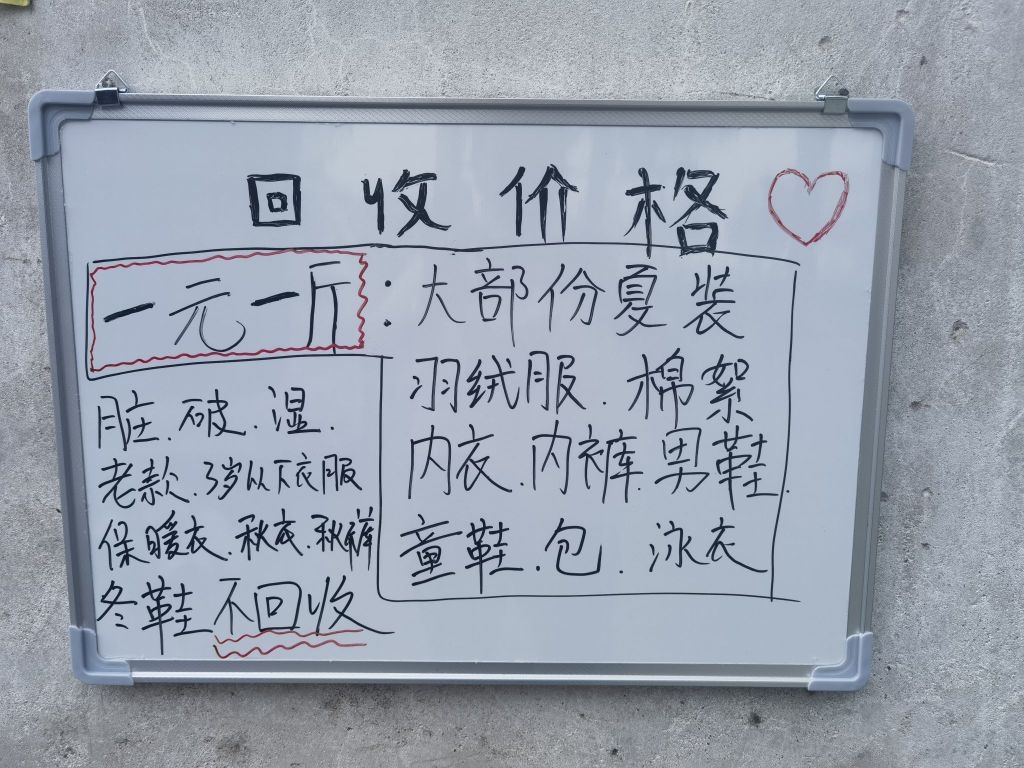 回收价格
一元一斤：大部份夏装
羽绒服.棉絮
内衣.内裤.男鞋.
童鞋.包.泳衣
脏.破.湿.
老款.3岁以下衣服
保暖衣.秋衣.秋裤
冬鞋不回收